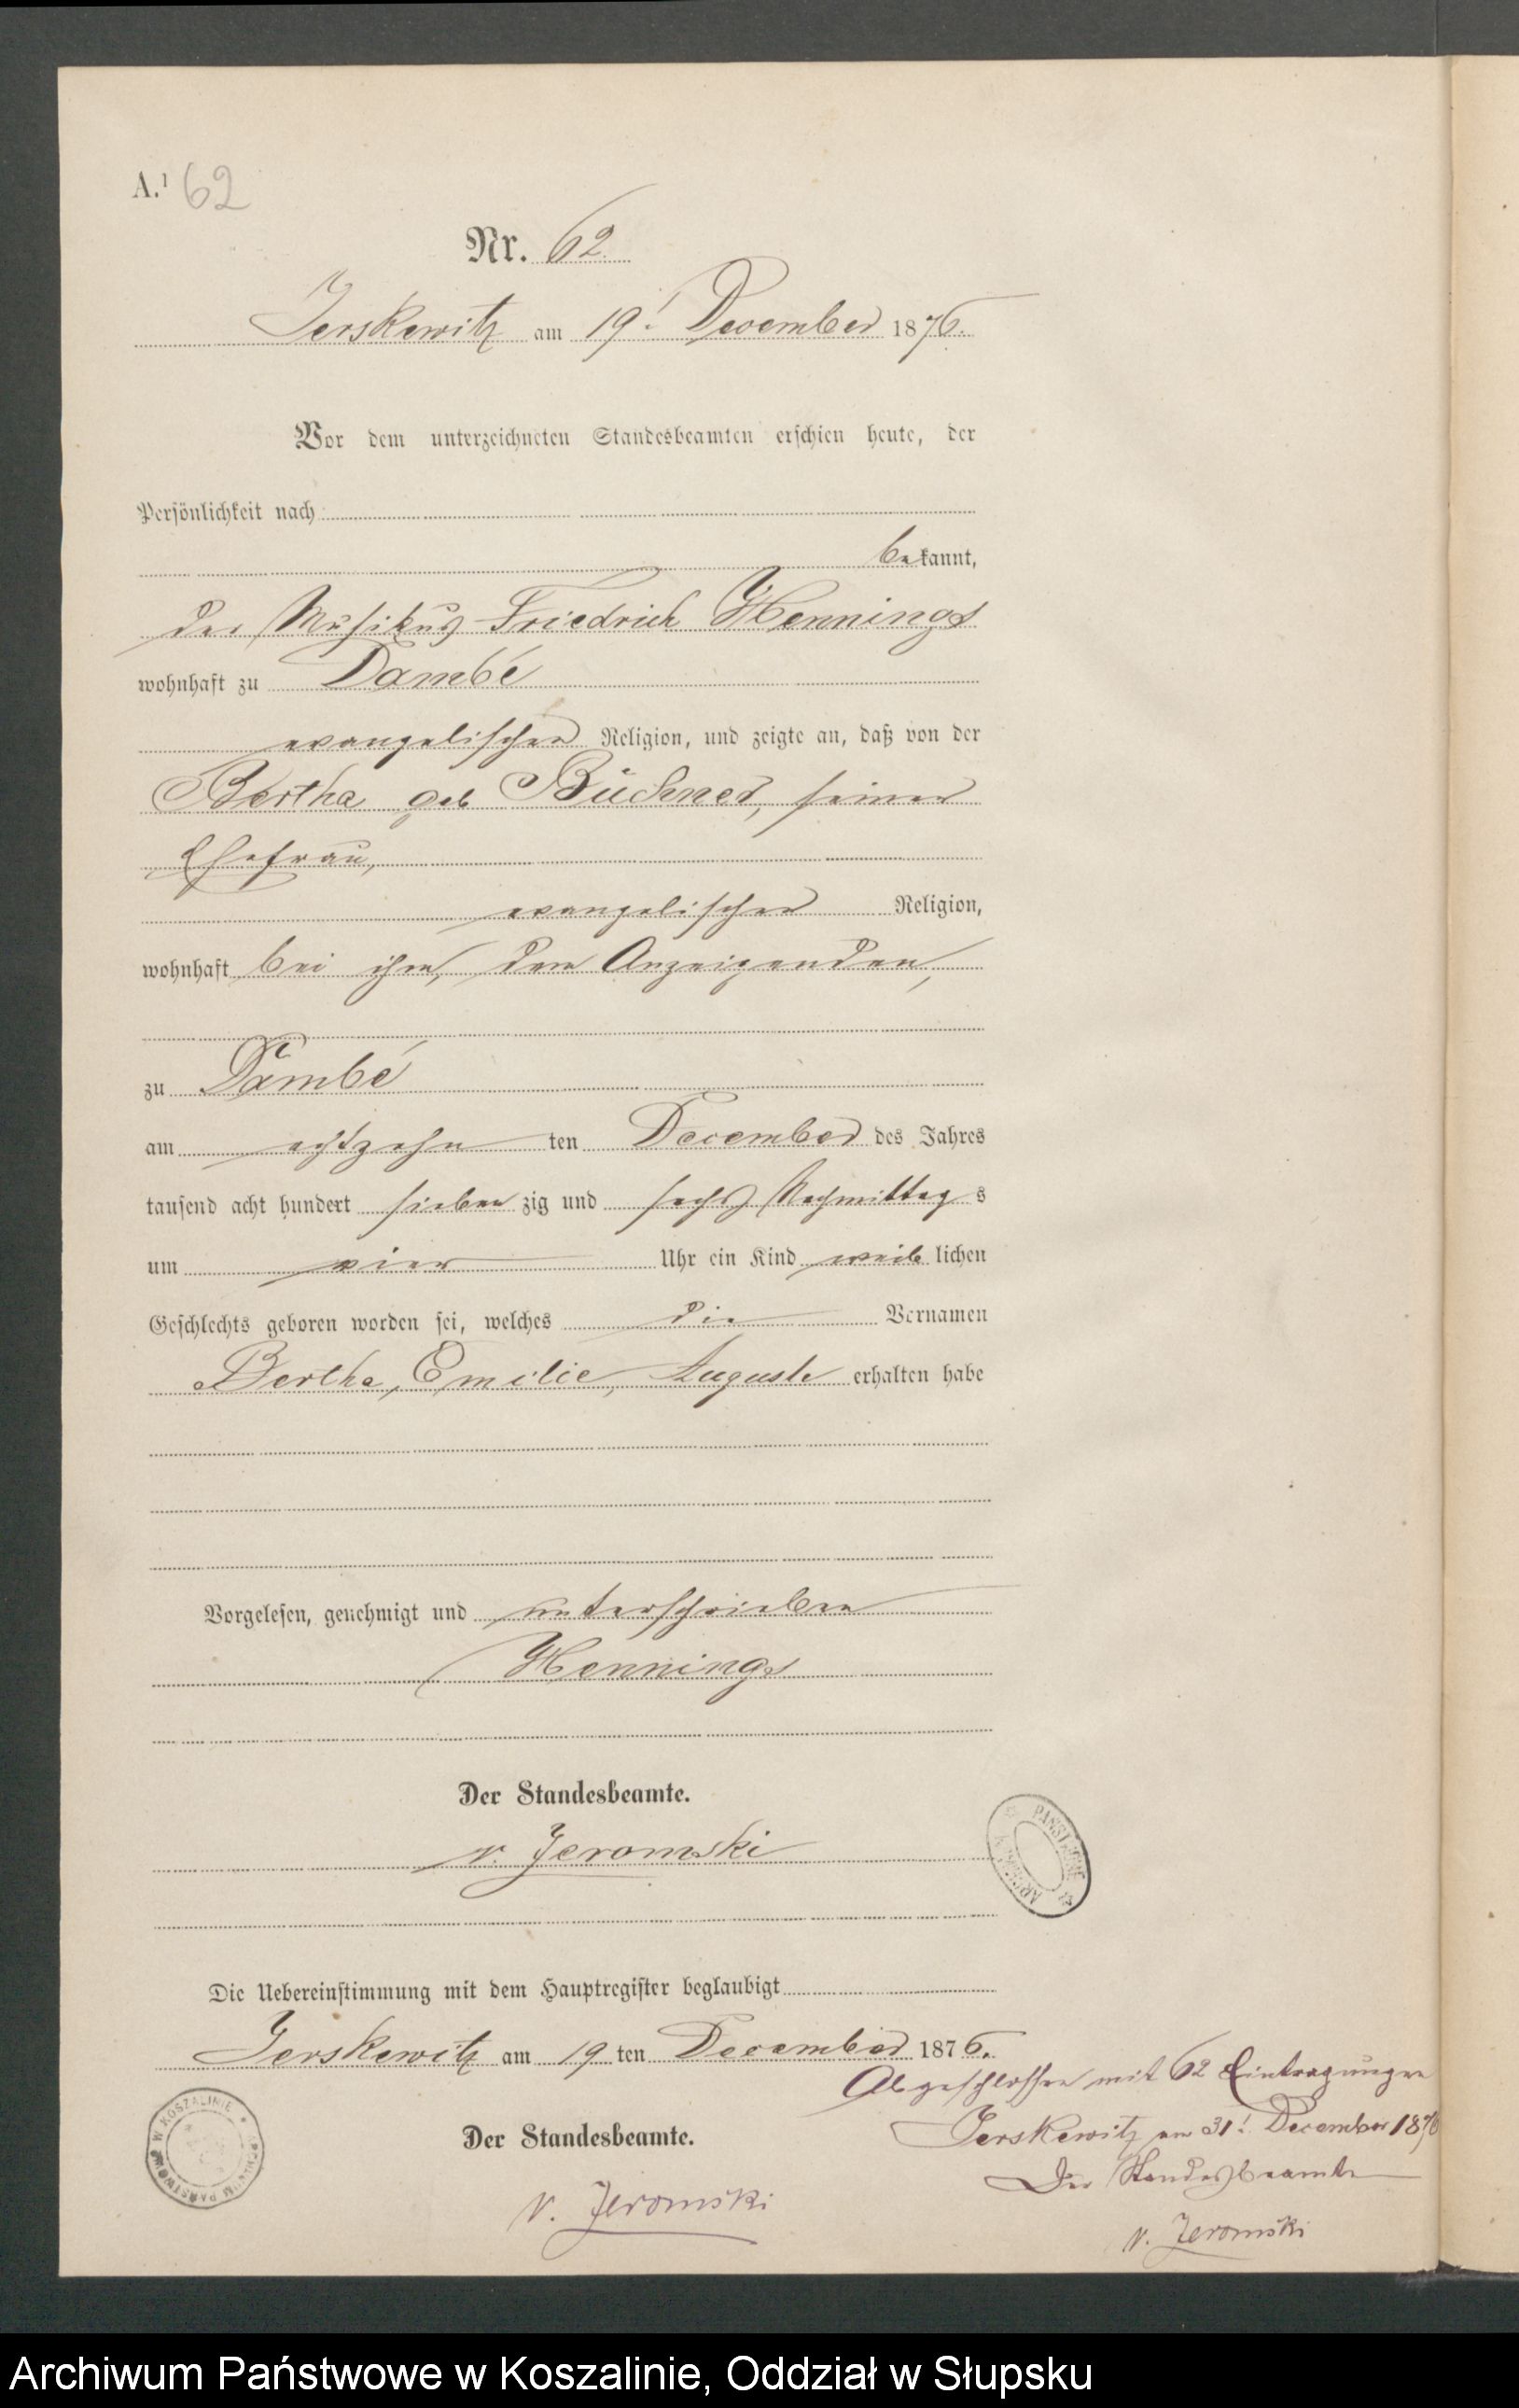 A.¹ 62
Nr. 62.
Jerskewitz am 19! December 1876.
Vor dem unterzeichneten Standesbeamten erschien heute, der
Persönlichkeit nach
bekannt,
der Musikus Friedrich Hennings
wohnhaft zu Dambé
evangelischer Religion, und zeigte an, daß von der
Bertha geb Büchner, seiner
Ehefrau,
evangelischer Religion,
wohnhaft bei ihm, dem Anzeigenden,
zu Dambé
am achtzehn ten December des Jahres
tausend acht hundert sieben zig und sechs Nachmittag s
um vier Uhr ein Kind weib lichen
Geschlechts geboren worden sei, welches die Vornamen
Bertha, Emilie, Auguste erhalten habe
Vorgelesen, genehmigt und unterschrieben
Hennings
Der Standesbeamte.
v. Jeromski
Die Uebereinstimmung mit dem Hauptregister beglaubigt
Jerskewitz am 19 ten December 1876.
Abgeschlossen mit 62 Eintragungen
Jerskewitz am 31! December 1876
Der Standesbeamte
v. Jeromski
Der Standesbeamte.
v. Jeromski
ARCHIWUM PAŃSTWOWE W KOSZALINIE
Archiwum Państwowe w Koszalinie, Oddział w Słupsku